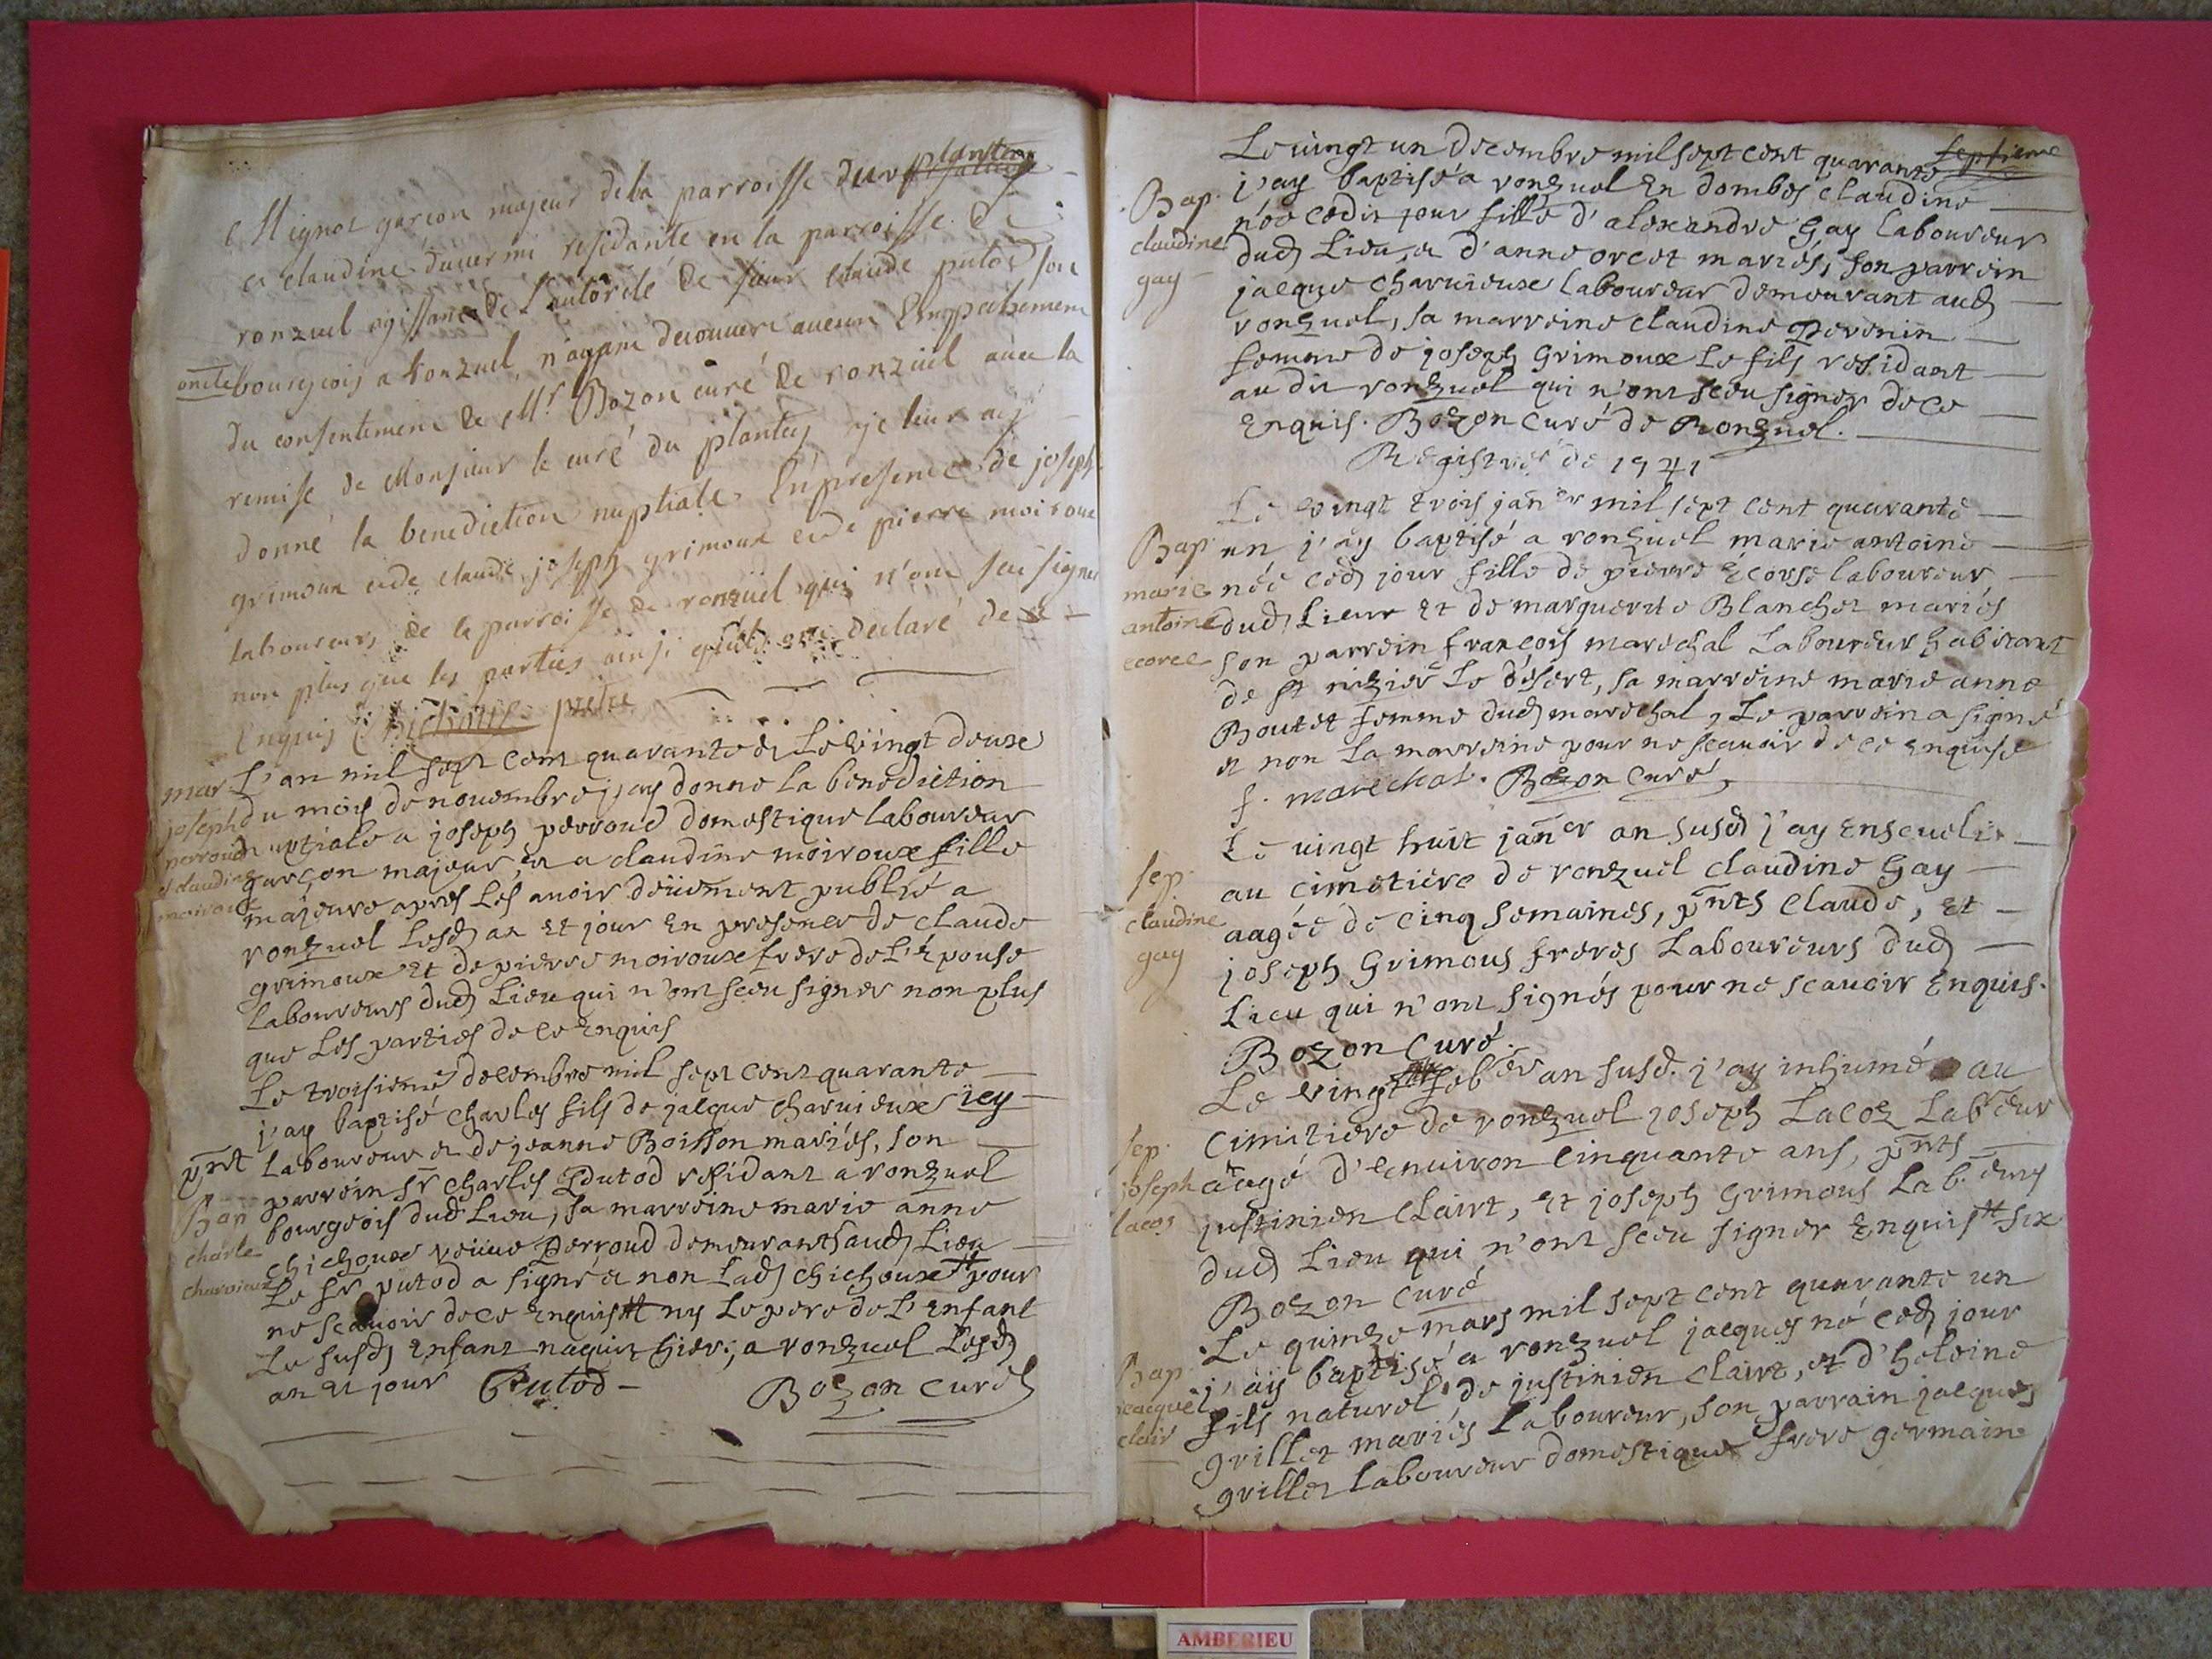 Mignot garcon majeur de la parroisse du plantay
et claudine duvermi residante en la parroisse de
ronzuel agissante de l'autorité de sieur claude putod son
oncle bourgeois a Ronzuel, n'ayant decouvert aucun Empechement
du consentement de Mr Bozon curé de ronzuel avec la
remise de Monsieur le curé du plantey je leur ay
donné la benediction nuptiale En presence de joseph
grimoux et de claude joseph grimoux et de pierre moiroux
laboureurs de la parroisse de ronzuel qui n'ont sçu signer
non plus que les parties ainsi qu'ils ont declaré de ce
Enquis Chichoux prêtre
mar L'an mil sept cent quarante et Le vingt deux
joseph du mois de novembre j'ay donne la benediction
perroud nuptiale a joseph perroud domestique laboureur
et claudine garçon majeur, et a claudine moiroux fille
moiroux majeure apres les avoir deüement publié a
ronzuel lesd an Et jour En presence de claude
grimoux Et de pierre moiroux frere de l'épouse
laboureurs dud Lieu qui n'ont sceu signer non plus
que Les parties de ce Enquis
Le troisieme decembre mil sept cent quarante
j'ay baptisé charles fils de jacque charvieux icy
pnt laboureur et de jeanne Boisson mariés, son
parrein sr charles Putod residant a ronzuel
bap bourgeois dud Lieu, sa marreine marie anne
charle chichoux veüve Perroud demeurants aud Lieu
charvieux Le sr putod a signé et non Lad chichoux pour
ne scavoir de ce Enquis ny Le pere de L'Enfant
Le susd Enfant naquit hier, a ronzuel Lesd
an Et jour Putod - Bozon curé
Le vingt un decembre mil sept cent quarante septieme
Bap. j'ay baptisé a ronzuel En dombes claudine
claudine née cedit jour fille d'alexandre Gay laboureur
gay dud Lieu, et d'anne orcet mariés, son parrein
jacque charvieux laboureur demeurant aud
ronzuel, sa marreine claudine Pevenin
femme de joseph Grimoux Le fils residant
au dit ronzuel qui n'ont sceu signer de ce
Enquis. Bozon curé de Ronzuel.
Registre de 1741
Le vingt trois janer mil sept cent quarante
Bap. un j'ay baptisé a ronzuel marie antoine
marie née ced jour fille de pierre Ecorse laboureur
antoine dud Lieur Et de marguerite Blanchet mariés
ecorce son parrein françois maréchal Laboureur habitant
de st nizier Le désert, sa marreine marie anne
Boutet femme dud maréchal, Le parrein a signé
et non La marreine pour ne scavoir de ce enquise
f. marechal. Bozon Curé,
Le vingt huit janer an susd j'ay enseveli
sep. au cimetiere de ronzuel claudine Gay
claudine aagée de cinq semaines, pnts Claude, Et
gay joseph Grimous freres Laboureurs dud
Lieu qui n'ont signés pour ne scavoir Enquis.
Bozon Curé.
Le vingt feber an susd. j'ay inhumé au
sep. Cimitiere de ronzuel joseph Lacoz Labreur
joseph aagé d'environ cinquante ans, pnts
lacoz justinien Clairt, Et joseph Grimous Lab.eurs
dud Lieu qui n'ont sceu signer Enquis six
Bozon curé
Le quinze mars mil sept cent quarante un
Bap. j'ay baptisé a ronzuel jacques né ced jour
jacque fils naturel de justinien Clairt, et d'heleine
clair grillet mariés Laboureur, son parrain jacques
grillet laboureur domestique frere germain
AMBERIEU